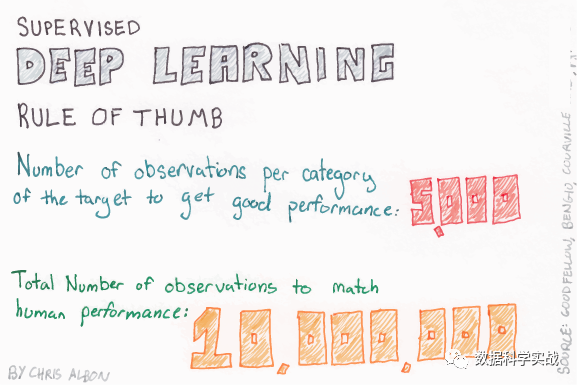 SUPERVISED
DEEP LEARNING
RULE OF THUMB
Number of observations per category
of the target to get good performance:
5,000
Total Number of observations to match
human performance:
10,000,000
BY CHRIS ALBON
SOURCE: GOODFELLOW, BENGIO, COURVILLE
数据科学实战